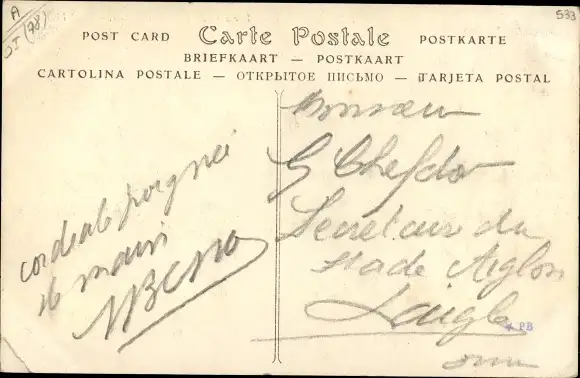 A
(78)
533
POST CARD Carte Postale POSTKARTE
BRIEFKAART — POSTKAART
CARTOLINA POSTALE — ОТКРЫТОЕ ПИСЬМО — TARJETA POSTAL
cordiale poignée
de main
Monsieur
G Chefdor
Secretaire du
Stade Aiglon
Laigle
PB
Orne